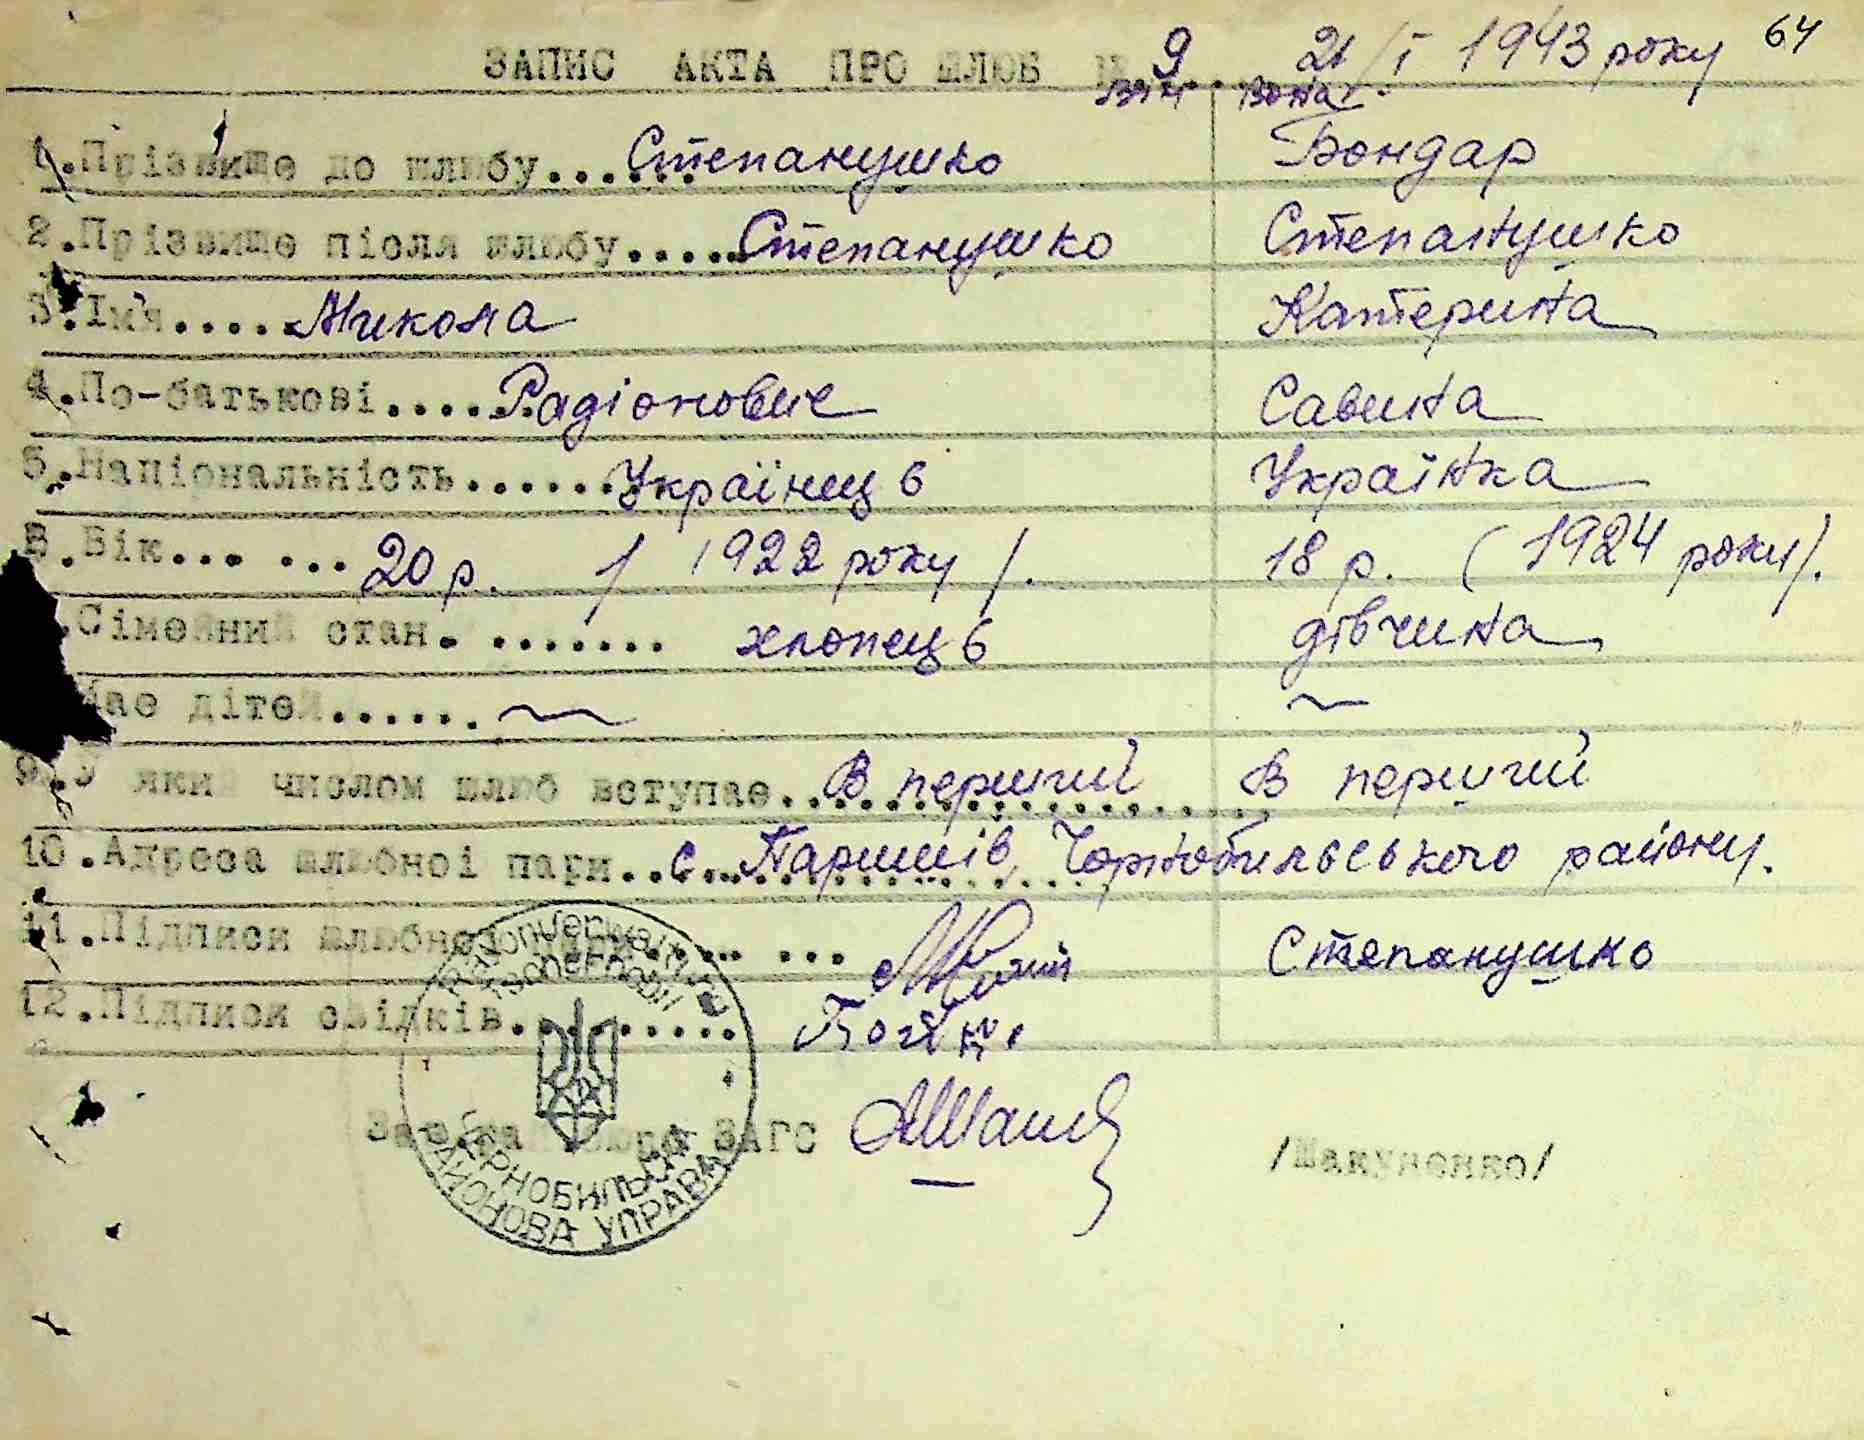 64
ЗАПИС АКТА ПРО ШЛЮБ № 9 21/І 1943 року
Він Вона
1. Прізвище до шлюбу...... Степанушко Бондар
2. Прізвище після шлюбу..... Степанушко Степанушко
3. Ім'я..... Микола Катерина
4. По-батькові...... Радіонович Савина
5. Національність...... Українець Українка
6. Вік... ... 20 р. / 1922 року /. 18 р. ( 1924 року/.
. Сімейний стан. ....... хлопець дівчина
Має дітей...... ~ ~
9. яким числом шлюб вступає.. В перший В перший
10. Адреса шлюбної пари.. с. Паришів, Чорнобильського району.
11. Підписи шлюбної пари... ... Степанушко
12. Підписи свідків.........
Зав. ЗАГС /Шакуненко/
Rayonverwaltung
Tschernobil
ЧЕРНОБИЛЬСЬКА
РАЙОНОВА УПРАВА